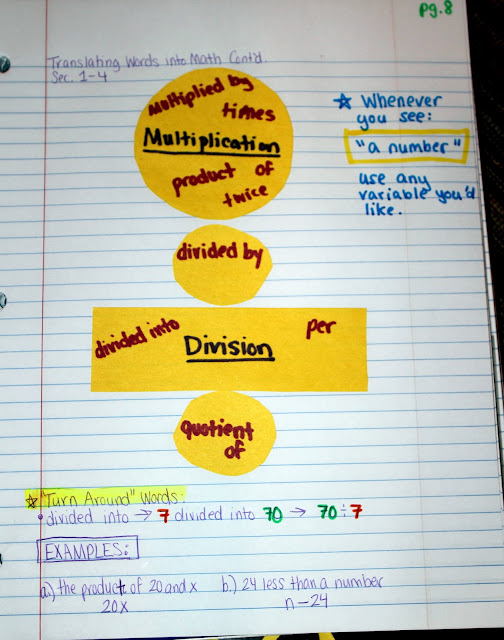 pg. 8
Translating Words into Math Cont'd.
Sec. 1-4
multiplied by
times
Multiplication
product of
twice
☆ Whenever
you see:
"a number"
use any
variable you'd
like.
divided by
divided into
Division
per
quotient
of
☆ "Turn Around" Words:
• divided into → 7 divided into 70 → 70 ÷ 7
EXAMPLES:
a.) the product of 20 and x
20x
b.) 24 less than a number
n - 24